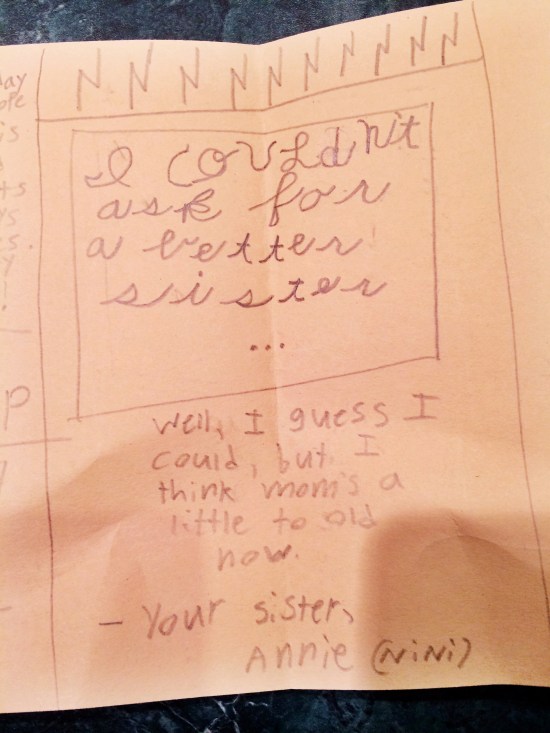 N N N N N N N N N
I COULdn't
ask for
a better
sister
...
Well, I guess I
could, but I
think mom's a
little to old
now.
- Your sister,
Annie (NiNi)
P